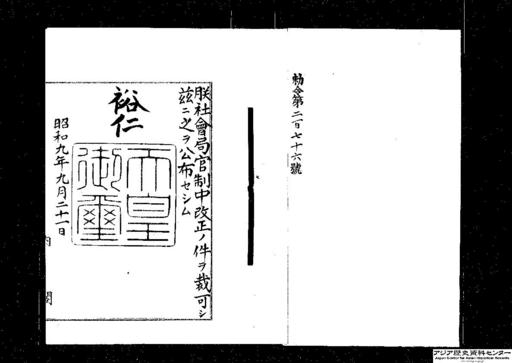 勅令第二百七十六號
朕社會局官制中改正ノ件ヲ裁可シ
茲ニ之ヲ公布セシム
裕仁
天皇御璽
昭和九年九月二十一日
内閣
アジア歴史資料センター
Japan Center for Asian Historical Records